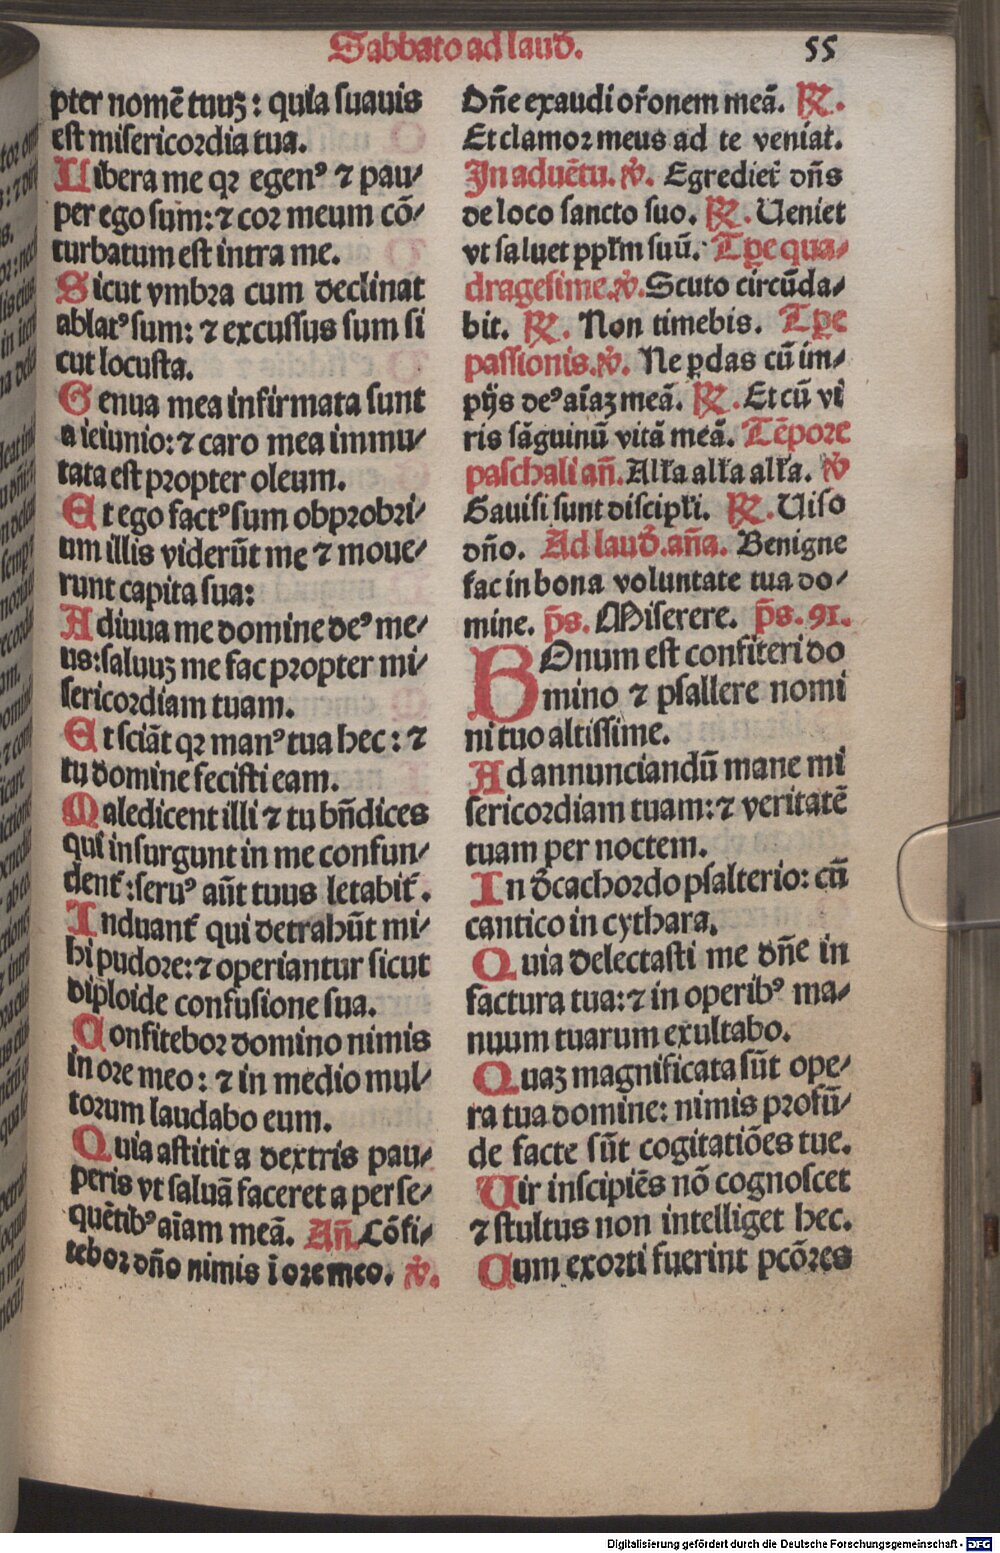 Sabbato ad laud̄.
55
pter nomē tuuꝫ: quia suauis
est misericordia tua.
Libera me qꝛ egenꝰ ⁊ pau⸗
per ego sum: ⁊ coꝛ meum cō⸗
turbatum est intra me.
Sicut vmbꝛa cum declinat
ablatꝰ sum: ⁊ excussus sum si
cut locusta.
Genua mea infirmata sunt
a ieiunio: ⁊ caro mea immu⸗
tata est pꝛopter oleum.
Et ego factꝰ sum obpꝛobꝛi⸗
um illis viderūt me ⁊ moue⸗
runt capita sua:
Adiuua me domine deꝰ me⸗
us: saluuꝫ me fac pꝛopter mi⸗
sericordiam tuam.
Et sciāt qꝛ manꝰ tua hec: ⁊
tu domine fecisti eam.
Maledicent illi ⁊ tu bn̄dices
qui insurgunt in me confun⸗
dent̄: seruꝰ aūt tuus letabit̄.
Induant̄ qui detrahūt mi⸗
hi pudoꝛe: ⁊ operiantur sicut
diploide confusione sua.
Confiteboꝛ domino nimis
in oꝛe meo: ⁊ in medio mul⸗
toꝛum laudabo eum.
Quia astitit a dextris pau⸗
peris vt saluā faceret a perse⸗
quētibꝰ aīam meā. An̄. Cōfi⸗
teboꝛ dn̄o nimis ī oꝛe meo. ℣.
Dn̄e exaudi or̄onem meā. ℟.
Et clamoꝛ meus ad te veniat.
In aduētu. ℣. Egrediet̄ dn̄s
de loco sancto suo. ℟. Ueniet
vt saluet ppłm suū. Tꝑe qua⸗
dragesime. ℣. Scuto circūda⸗
bit. ℟. Non timebis. Tꝑe
passionis. ℣. Ne ꝑdas cū im⸗
pijs deꝰ aīaꝫ meā. ℟. Et cū vi
ris sāguinū vitā meā. Tēpoꝛe
paschali an̄. Alła alła alła. ℣
Gauisi sunt discipłi. ℟. Uiso
dn̄o. Ad laud̄. an̄a. Benigne
fac in bona voluntate tua do⸗
mine. p̄s. Miserere. p̄s. 91.
BOnum est confiteri do
mino ⁊ psallere nomi
ni tuo altissime.
Ad annunciandū mane mi
sericordiam tuam: ⁊ veritatē
tuam per noctem.
In d̄cachoꝛdo psalterio: cū
cantico in cythara.
Quia delectasti me dn̄e in
factura tua: ⁊ in operibꝰ ma⸗
nuum tuarum exultabo.
Quaꝫ magnificata sūt ope⸗
ra tua domine: nimis pꝛofū⸗
de facte sūt cogitatiōes tue.
Uir insipiēs nō cognoscet
⁊ stultus non intelliget hec.
Cum exoꝛti fuerint pc̄ōꝛes
Digitalisierung gefördert durch die Deutsche Forschungsgemeinschaft - DFG